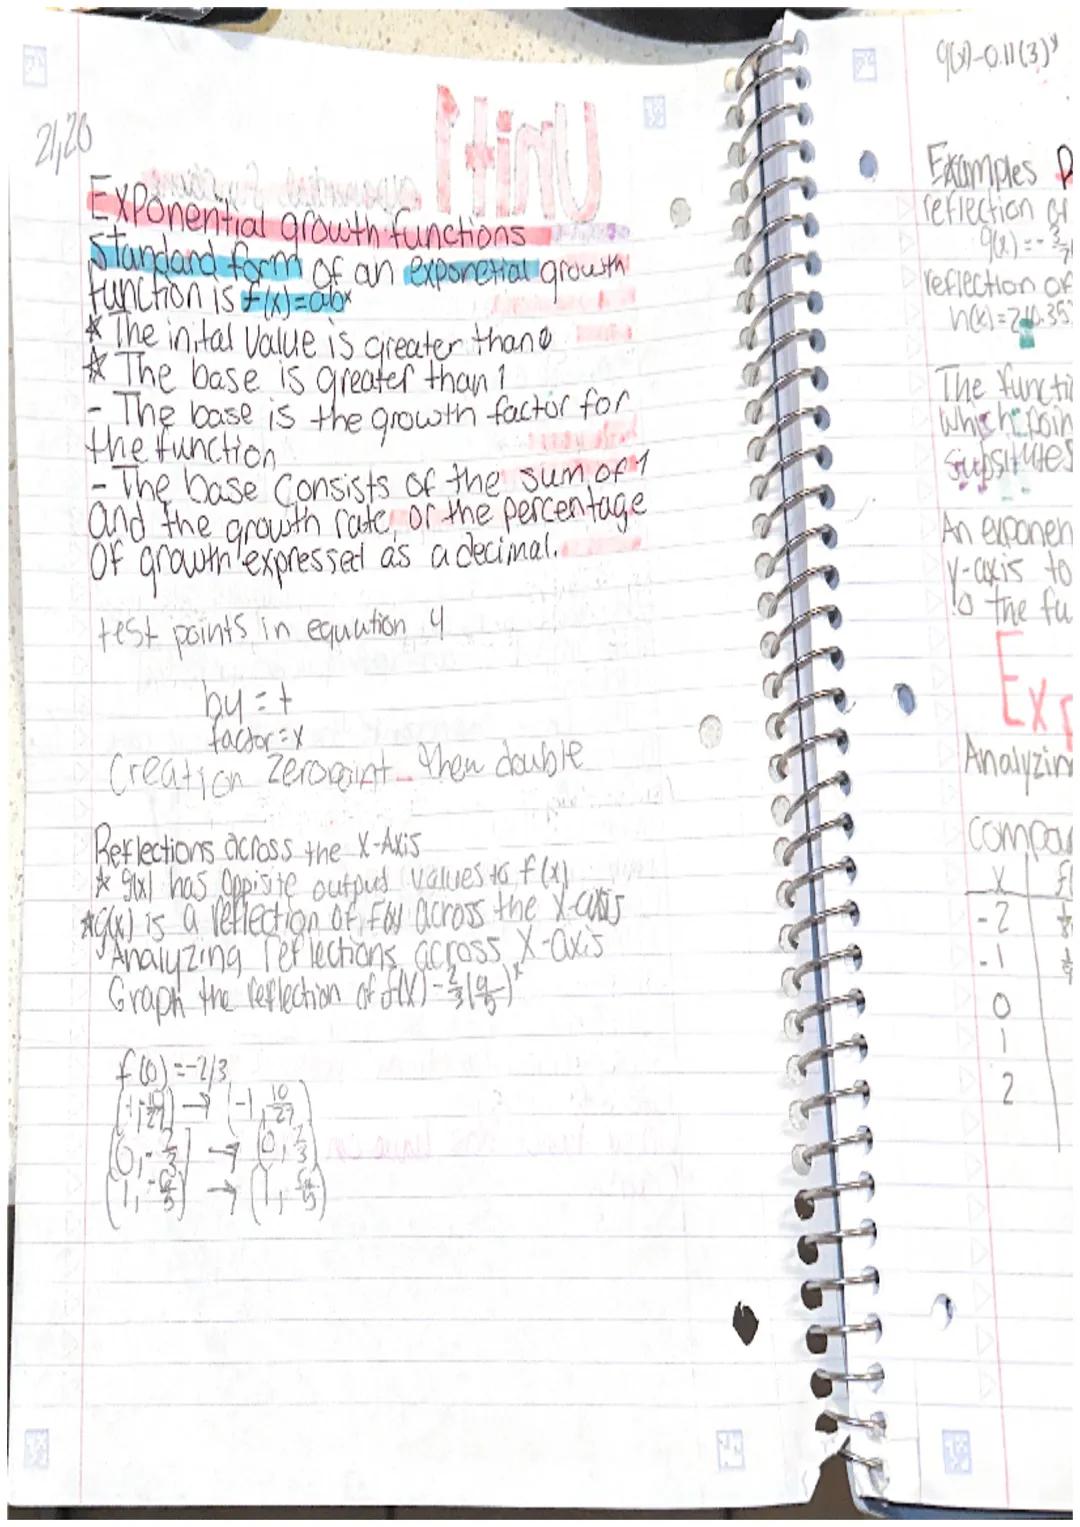 21,20
Unit 1
Exponential growth functions
Standard form of an exponetial growth
function is f(x)=abˣ
* The inital value is greater than 0
* The base is greater than 1
- The base is the growth factor for
the function
- The base consists of the sum of 1
and the growth rate, or the percentage
of growth expressed as a decimal.
test points in equation 4
by = t
factor = x
Creation Zeropoint then double
Reflections across the X-Axis
* g(x) has opposite output values to f(x)
* g(x) is a reflection of f(x) across the x-axis
Analyzing reflections across X-axis
Graph the reflection of f(x) -2/3(9/5)ˣ
f(0) = -2/3
(-1, -10/27) → (-1, 10/27)
(0, -2/3) → (0, 2/3)
(1, -6/5) → (1, 6/5)
g(x)-0.11(3)ˣ
Examples
reflection of
g(x) = -3
reflection of
h(x)=2(0.35
The functi
which poin
Subsitutes
An exponen
y-axis to
to the fu
Exp
Analyzin
Compar
x f(
-2
-1
0
1
2